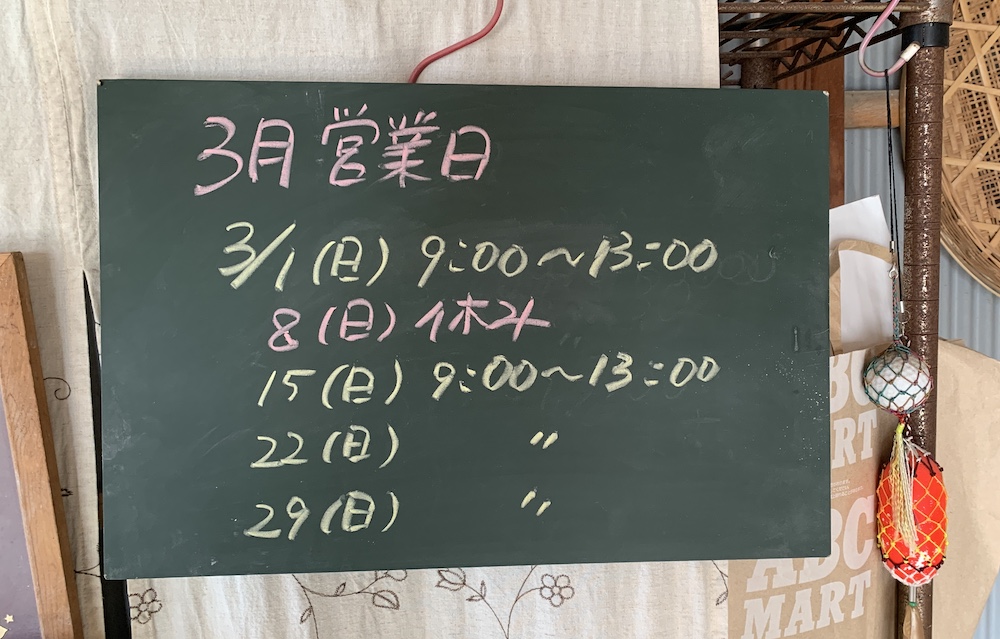 3月 営業日
3/1(日) 9:00〜13:00
8(日) 休み
15(日) 9:00〜13:00
22(日) 〃
29(日) 〃
ABC
MART
ABC
MART